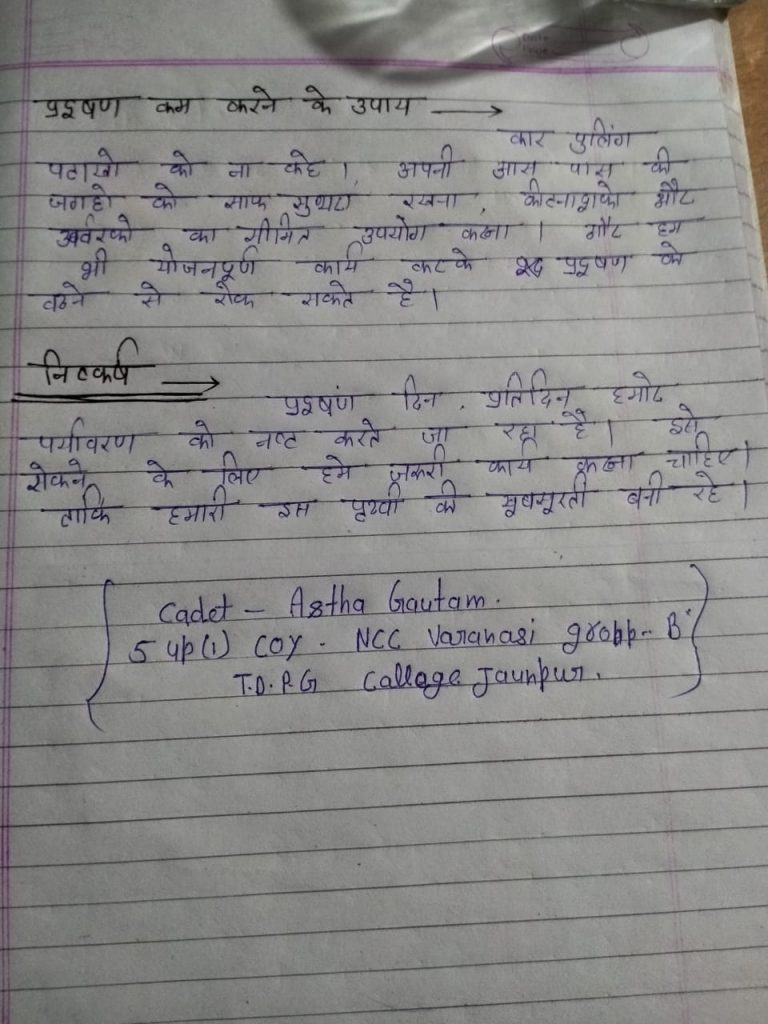 प्रदूषण कम करने के उपाय →
कार पुलिंग
पटाखो को ना कहे। अपनी आस पास की
जगहो को साफ सुथरा रखना, कीटनाशको और
उर्वरको का सीमित उपयोग करना। और हम
भी योजनपूर्ण कार्य करके प्रदूषण को
बढने से रोक सकते है।
निष्कर्ष →
प्रदूषंण दिन, प्रतिदिन हमारे
पर्यावरण को नष्ट करते जा रहा है। इसे
रोकने के लिए हमे जरूरी कार्य करना चाहिए।
ताकि हमारी इस पृथ्वी की खूबसूरती बनी रहे।
Cadet - Astha Gautam.
5 up(1) COY - NCC Varanasi gropp- B'
T.D.P.G Callage Jaunpur.